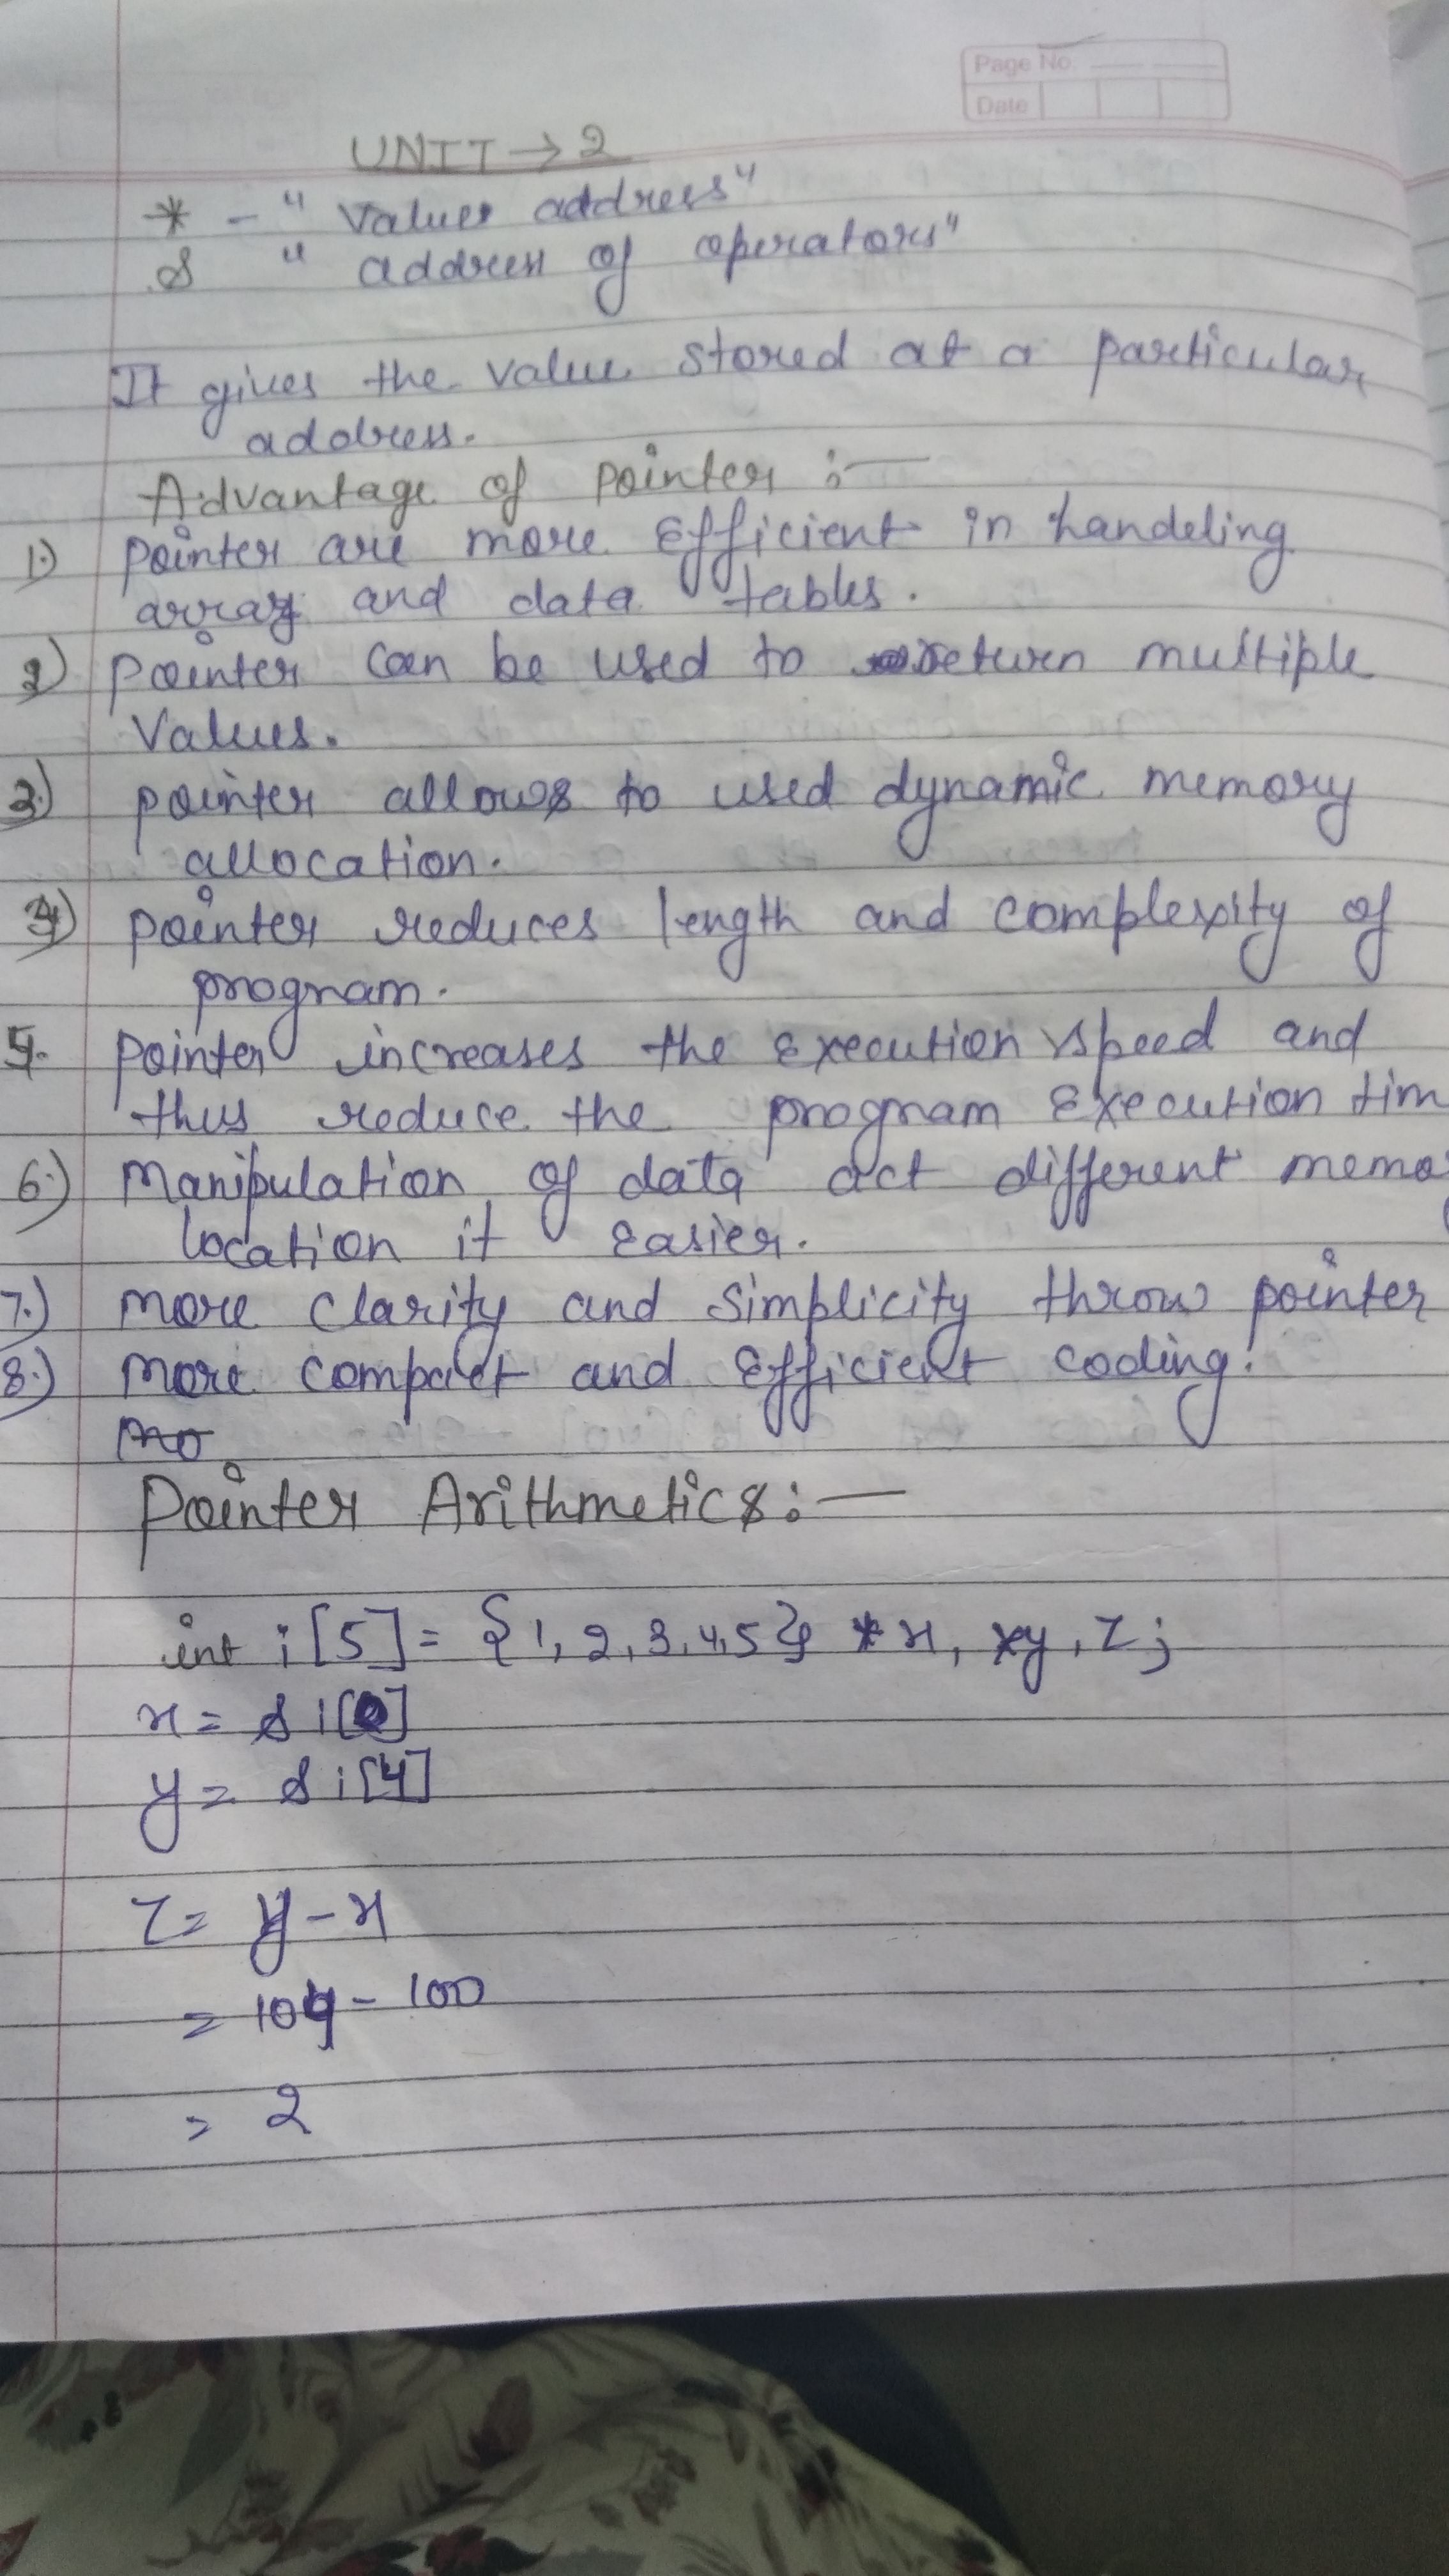 Page No.
Date
UNIT → 2
* - " Values address"
& " address of operators"
It gives the value stored at a particular
address.
Advantage of pointer :—
1.) pointer are more Efficient in handeling
array and data tables.
2) pointer can be used to return multiple
Values.
3.) pointer allows to used dynamic memory
allocation.
4) pointer reduces length and complexity of
program.
5. pointer increases the Execution speed and
thus reduce the program Execution tim
6.) Manipulation of data act different memo
location it easier.
7.) more clarity and simplicity throw pointer
8.) more compact and Efficient coding.
mo
Pointer Arithmetics :—
int i[5] = {1, 2, 3, 4, 5} *x, *y, z;
x = & i[0]
y = & i[4]
z = y - x
= 104 - 100
= 2